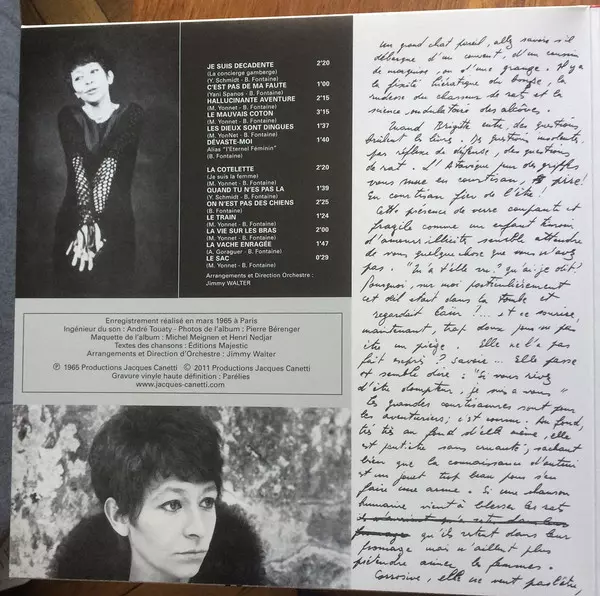 JE SUIS DECADENTE 2'20
(La concierge gamberge)
(Y. Schmidt - B. Fontaine)
C'EST PAS DE MA FAUTE 1'00
(Yani Spanos - B. Fontaine)
HALLUCINANTE AVENTURE 2'15
(M. Yonnet - B. Fontaine)
LE MAUVAIS COTON 3'15
(M. Yonnet - B. Fontaine)
LES DIEUX SONT DINGUES 1'37
(M. YonNet - B. Fontaine)
DÉVASTE-MOI 1'40
Alias "l'Eternel Féminin"
(B. Fontaine)
LA COTELETTE 2'20
(Je suis la femme)
(M. Yonnet - B. Fontaine)
QUAND TU N'ES PAS LA 1'39
(Y. Schmidt - B. Fontaine)
ON N'EST PAS DES CHIENS 2'25
(M. Yonnet - B. Fontaine)
LE TRAIN 1'24
(M. Yonnet - B. Fontaine)
LA VIE SUR LES BRAS 2'00
(M. Yonnet - B. Fontaine)
LA VACHE ENRAGÉE 1'47
(A. Goraguer - B. Fontaine)
LE SAC 0'29
(M. Yonnet - B. Fontaine)
Arrangements et Direction Orchestre :
Jimmy WALTER
Enregistrement réalisé en mars 1965 à Paris
Ingénieur du son : André Touaty - Photos de l'album : Pierre Bérenger
Maquette de l'album : Michel Meignen et Henri Nedjar
Textes des chansons : Éditions Majestic
Arrangements et Direction d'Orchestre : Jimmy Walter
Ⓟ 1965 Productions Jacques Canetti © 2011 Productions Jacques Canetti
Gravure vinyle haute définition : Parélies
www.jacques-canetti.com
Un grand chat pareil, allez savoir s'il
débarque d'un couvent, d'un coussin
de marquise, ou d'une grange. Il y a
la fixité hiératique du bonze, la
rudesse du chasseur de rat et la
science ondulatoire des alcôves.
Quand Brigitte entre, des questions
brûlent les lèvres. Des questions insolentes,
par réflexe de défense, des questions
de rat. L'atavique peur des griffes
vous mue en courtisan, pire!
En courtisan fier de l'être!
Cette présence de verre coupant et
fragile comme un enfant témoin
d'amour illicite semble attendre
de vous quelque chose que vous n'avez
pas. "Qu'a-t-elle vu? qu'ai-je dit?
Pourquoi, sur moi particulièrement
cet œil était dans la tombe et
regardait Caïn?... et ce sourire,
maintenant, trop doux pour ne pas
être un piège. Elle ne l'a pas
fait exprès? savoir... Elle passe
et semble dire : "Si vous rêvez
d'être dompteur, je suis à vous"
Les grandes courtisanes sont pour
les aventuriers; c'est connu. Au fond,
très très au fond d'elle même, elle
est peut-être sans cruauté, sachant
bien que la connaissance d'autrui
est un jouet trop beau pour s'en
faire une arme. Si une chanson
humaine vient à blesser les rats
qu'ils restent dans leur
fromage mais n'aillent plus
prétendre aimer les femmes.
Corrosive, elle ne veut pas l'être,